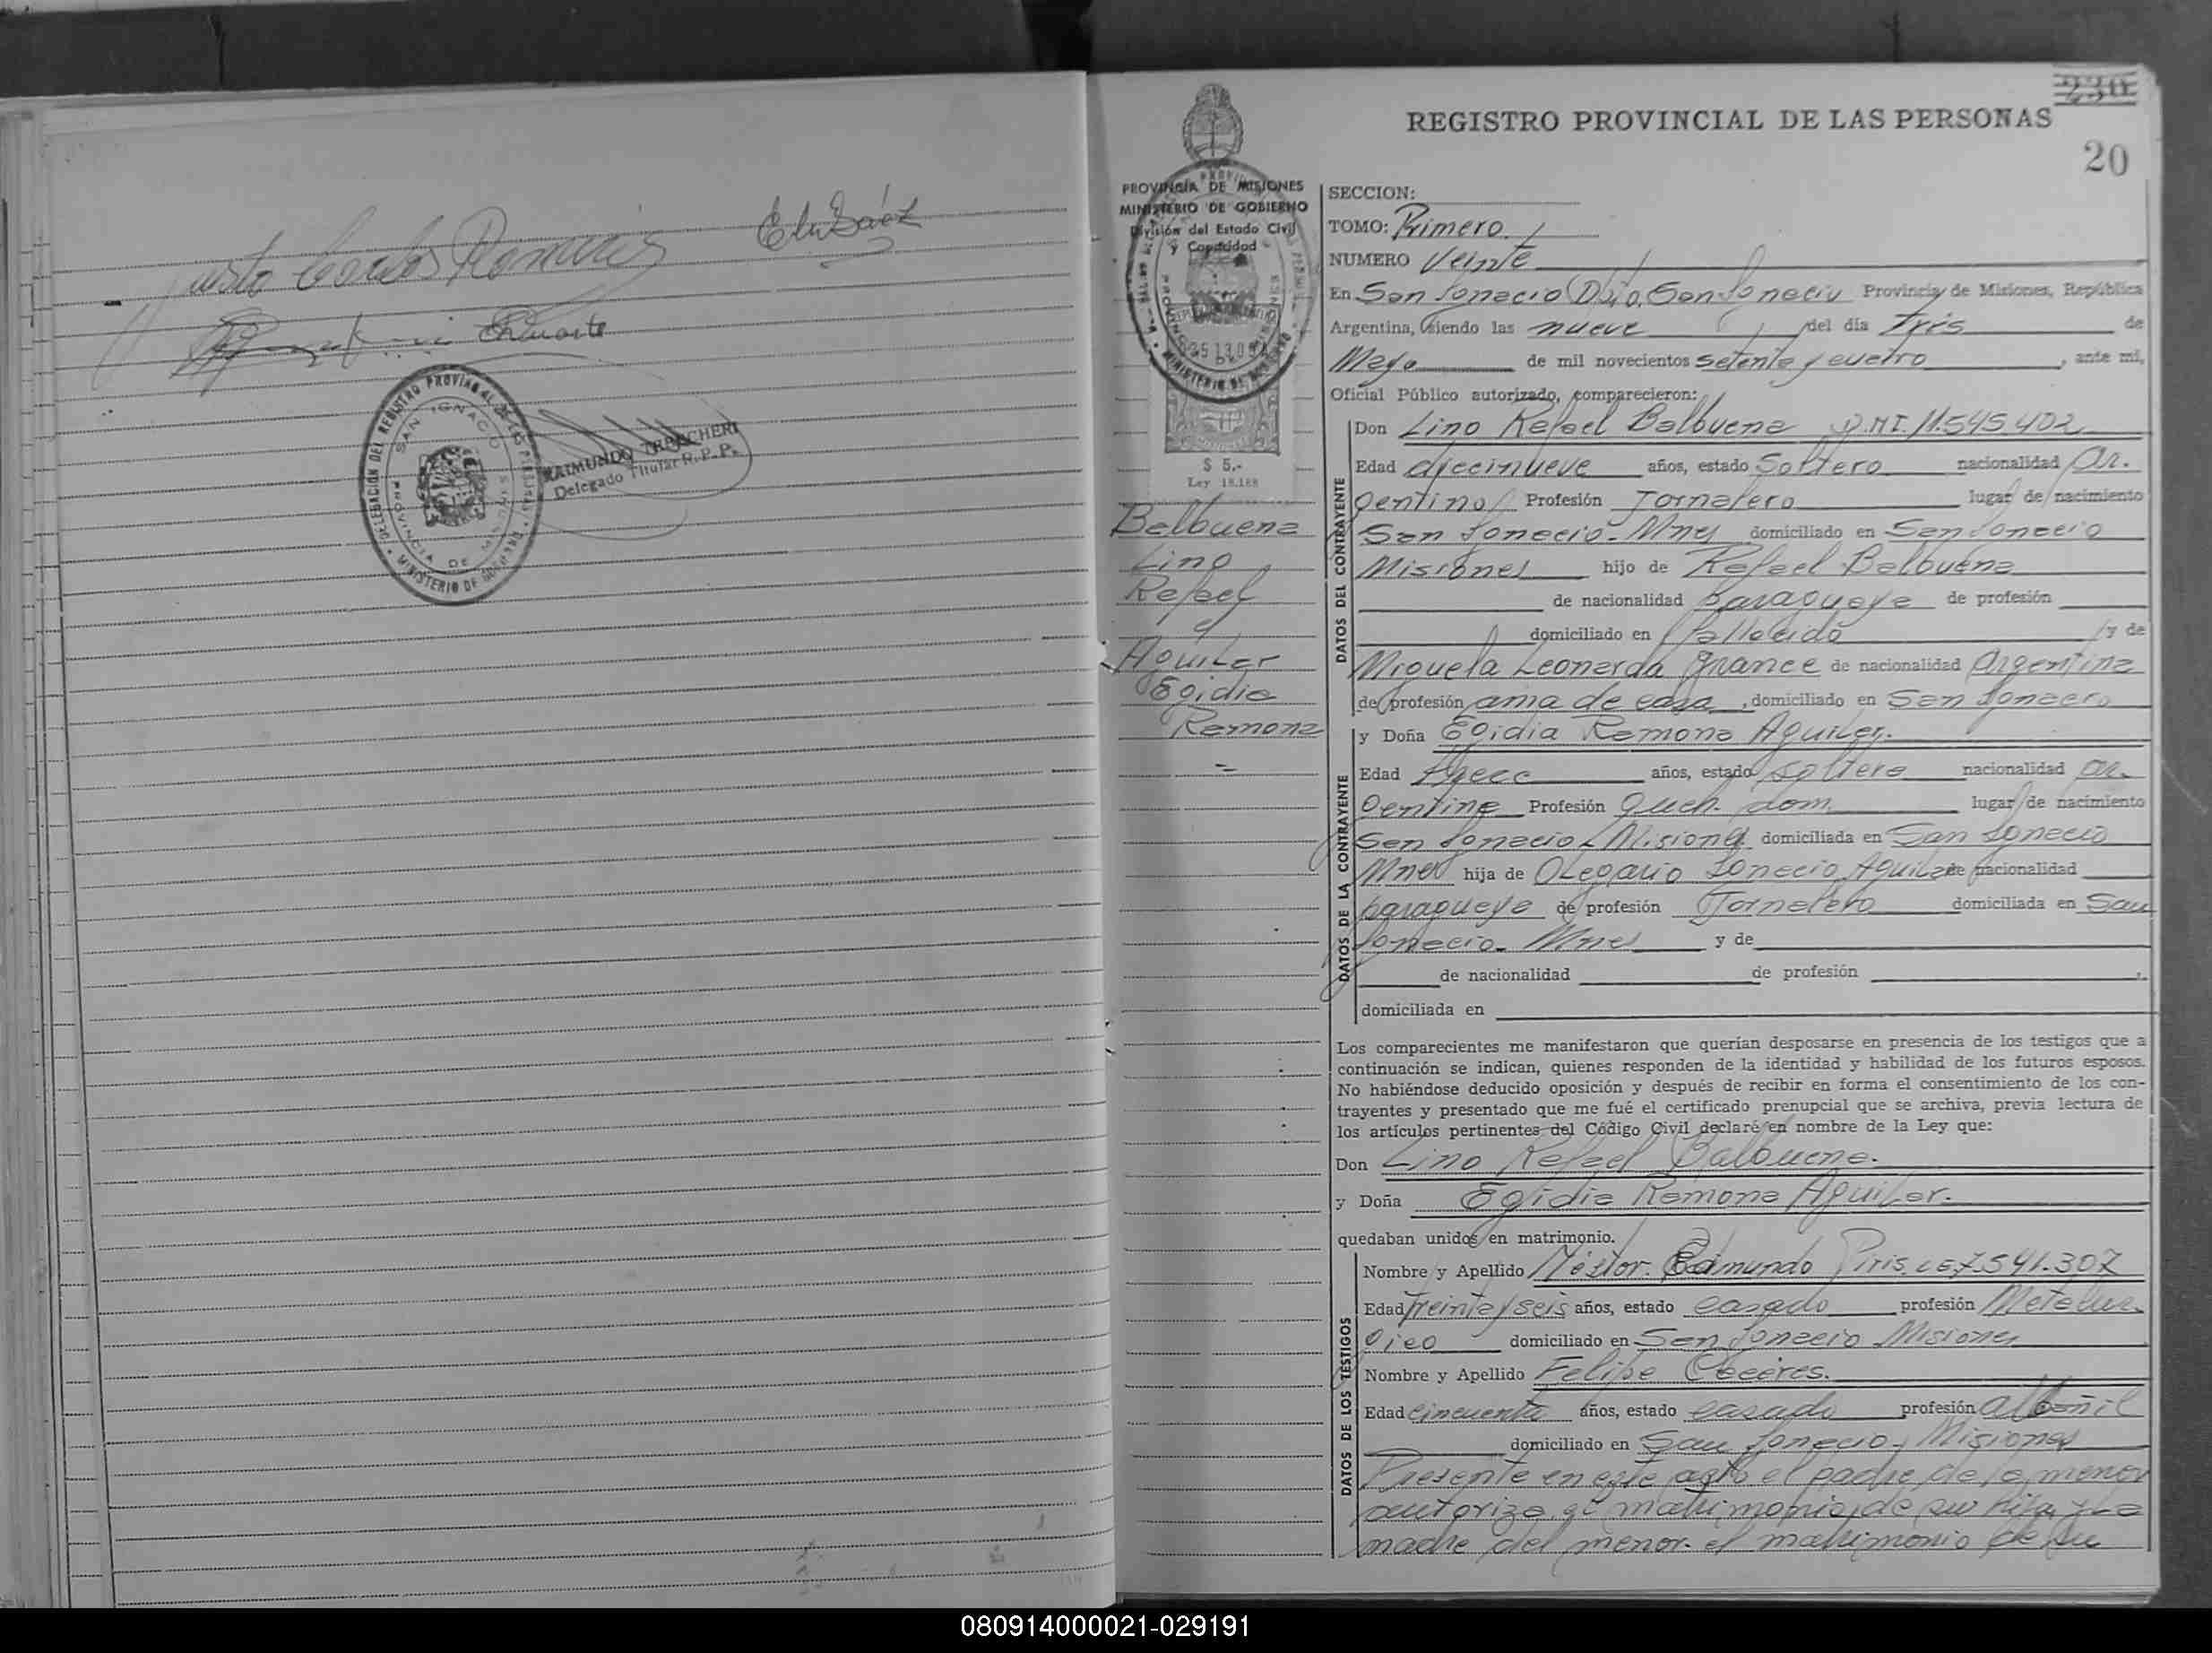 Justo Carlos Ramirez
Elu Báez
Duarte
DELEGACIÓN DEL REGISTRO PROVINCIAL DE LAS PERSONAS
SAN IGNACIO
PROVINCIA DE MISIONES
MINISTERIO DE GOBIERNO
RAIMUNDO
Delegado Titular R. P. P.
230
REGISTRO PROVINCIAL DE LAS PERSONAS
20
PROVINCIA DE MISIONES
MINISTERIO DE GOBIERNO
División del Estado Civil
y Capacidad
MINISTERIO DE GOBIERNO
$ 5.-
Ley 18.188
Balbuena
Lino
Rafael
y
Aguilar
Egidia
Ramona
=
SECCION:
TOMO: Primero
NUMERO Veinte
En San Ignacio Dpto. San Ignacio Provincia de Misiones, República
Argentina, siendo las nueve del día tres de
Mayo de mil novecientos setenta y cuatro, ante mi,
Oficial Público autorizado, comparecieron:
DATOS DEL CONTRAYENTE
Don Lino Rafael Balbuena D.N.I. 11.545.402
Edad diecinueve años, estado Soltero nacionalidad Ar-
gentino Profesión Jornalero lugar de nacimiento
San Ignacio - Mnes domiciliado en San Ignacio
Misiones hijo de Rafael Balbuena
de nacionalidad paraguaya de profesión
domiciliado en fallecido y de
Miguela Leonarda Grance de nacionalidad Argentina
de profesión ama de casa, domiciliado en San Ignacio
DATOS DE LA CONTRAYENTE
y Doña Egidia Ramona Aguilar.
Edad trece años, estado soltera nacionalidad Ar-
gentina Profesión Queh. dom. lugar de nacimiento
San Ignacio - Misiones domiciliada en San Ignacio
Mnes hija de Olegario Ignacio Aguilar de nacionalidad
paraguaya de profesión Jornalero domiciliada en San
Ignacio - Mnes y de
de nacionalidad de profesión
domiciliada en
Los comparecientes me manifestaron que querían desposarse en presencia de los testigos que a
continuación se indican, quienes responden de la identidad y habilidad de los futuros esposos.
No habiéndose deducido oposición y después de recibir en forma el consentimiento de los con-
trayentes y presentado que me fué el certificado prenupcial que se archiva, previa lectura de
los artículos pertinentes del Código Civil declaré en nombre de la Ley que:
Don Lino Rafael Balbuena.
y Doña Egidia Ramona Aguilar.
quedaban unidos en matrimonio.
DATOS DE LOS TESTIGOS
Nombre y Apellido Néstor Edmundo Piris. LE 7.541.307
Edad treinta y seis años, estado casado profesión Metalur-
gico domiciliado en San Ignacio Misiones
Nombre y Apellido Felipe Cáceres.
Edad cincuenta años, estado casado profesión albañil
domiciliado en San Ignacio - Misiones
Presente en este acto el padre de la menor
autoriza el matrimonio de su hija y la
madre del menor el matrimonio de su
080914000021-029191